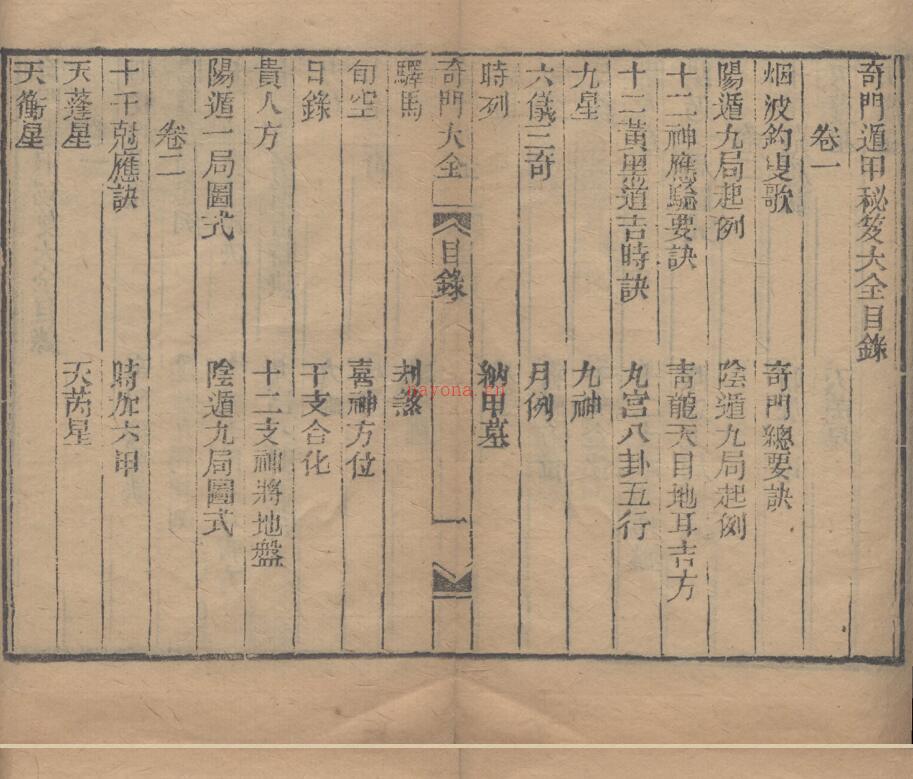 奇門遁甲秘笈大全目錄
卷一
烟波釣叟歌 奇門總要訣
陽遁九局起例 陰遁九局起例
十二神應驗要訣 青龍天目地耳吉方
十二黃黑道吉時訣 九宮八卦五行
九星 九神
六儀三奇 月例
時列 納甲墓
奇門大全 一 目錄 一
驛馬 刦煞
旬空 喜神方位
日錄 干支合化
貴人方 十二支神將地盤
陽遁一局圖式 陰遁九局圖式
卷二
十干尅應訣 時加六甲
天蓬星 天芮星
天衝星
nayona.cn